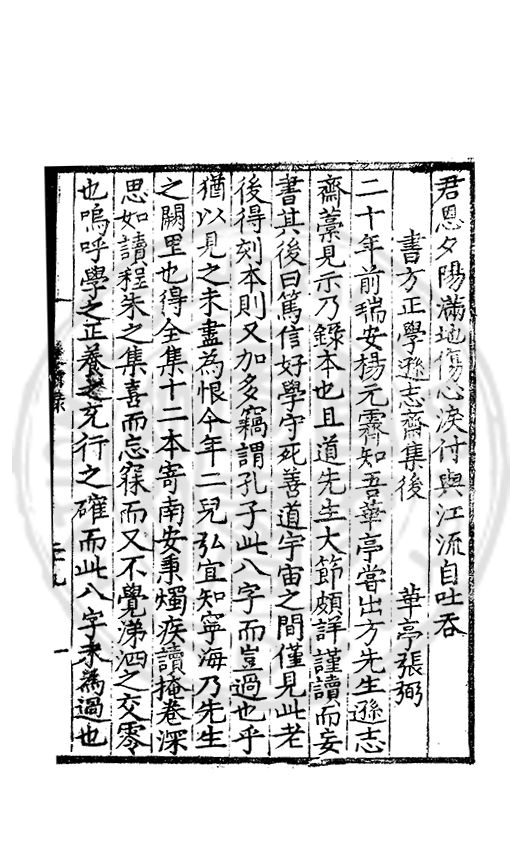 君恩夕陽滿地傷心淚付與江流自吐吞
書方正學遜志齋集後　華亭張弼
二十年前瑞安楊元霽知吾華亭嘗出方先生遜志
齋藁見示乃錄本也且道先生大節頗詳謹讀而妄
書其後曰篤信好學守死善道宇宙之間僅見此老
後得刻本則又加多竊謂孔子此八字而豈過也乎
猶以見之未盡為恨今年二兒弘宜知寧海乃先生
之闕里也得全集十二本寄南安秉燭疾讀掩卷深
思如讀程朱之集喜而忘寐而又不覺涕泗之交零
也嗚呼學之正養之充行之確而此八字未為過也